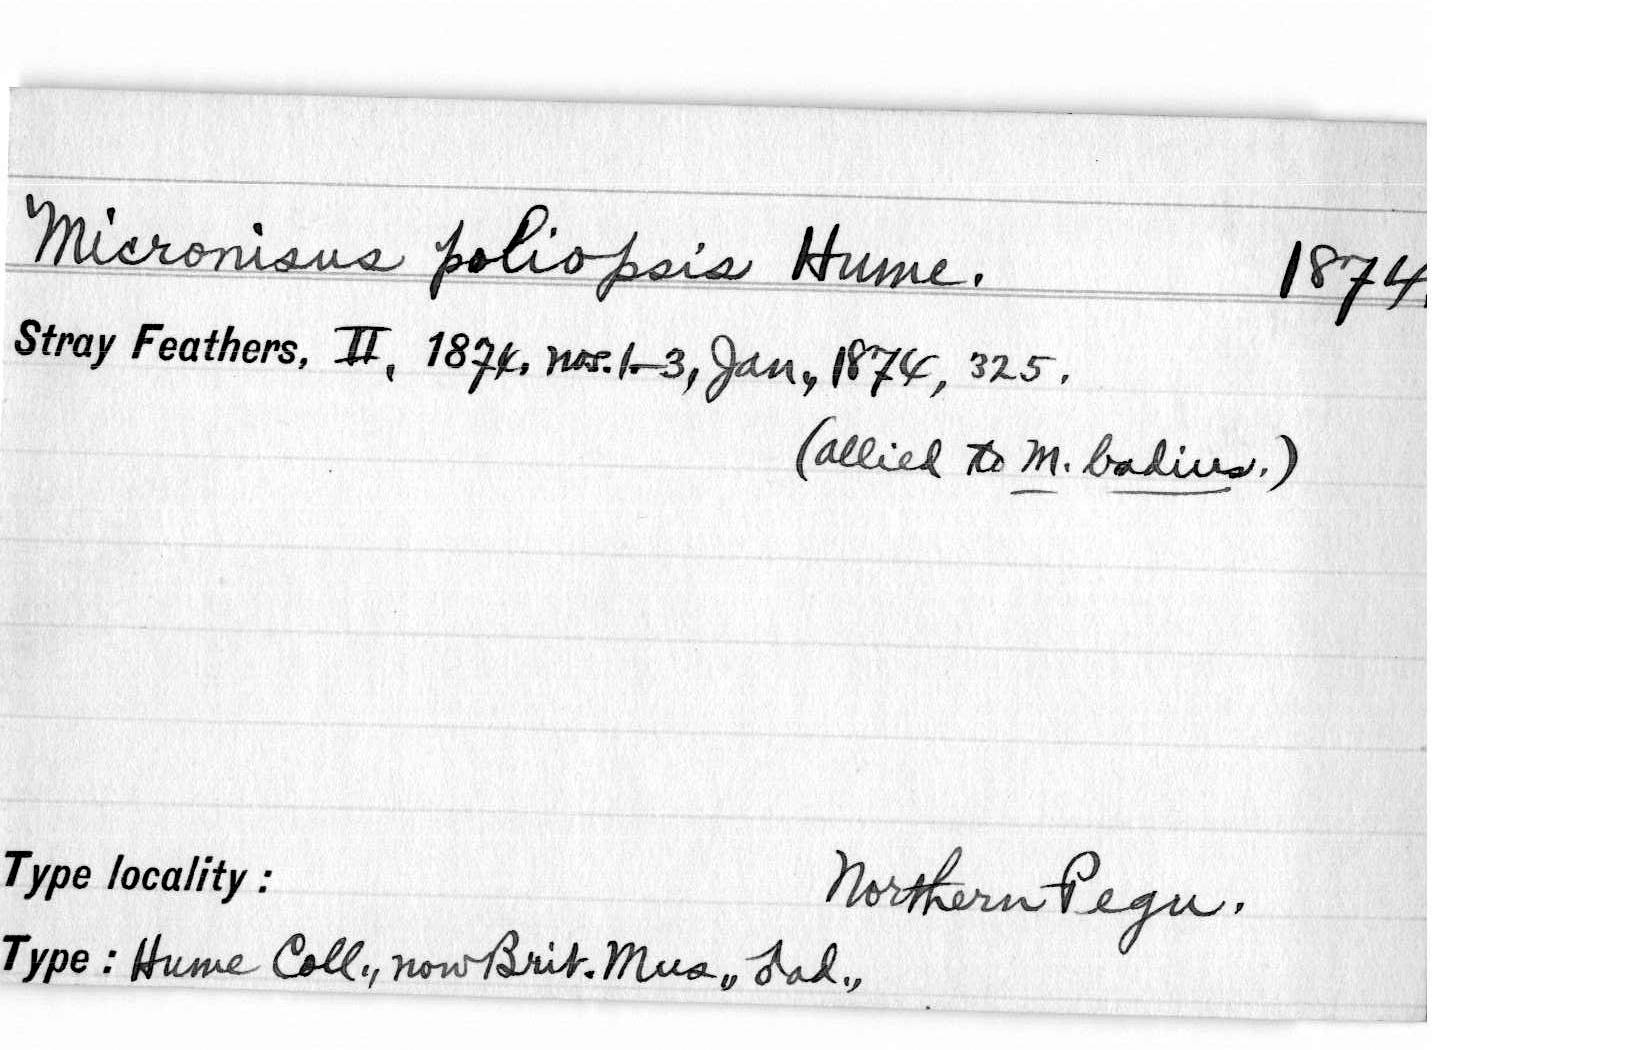 Micronisus poliopsis Hume. 1874.
Stray Feathers, II, 1874, nos. 1-3, Jan., 1874, 325.
(allied to M. badius.)
Type locality : Northern Pegu.
Type : Hume Coll., now Brit. Mus.,, ♂ad.,